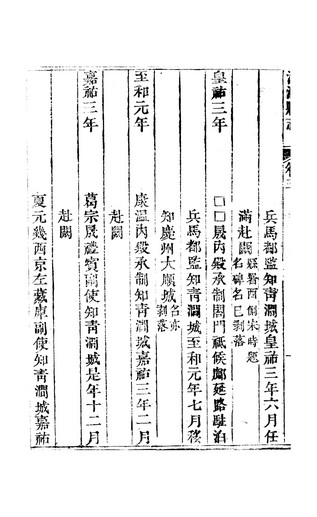 兵馬都監知青澗城皇祐三年六月任
滿赴闕縣署西側宋時題名碑名已剥落
皇祐三年 □□晟內殿承制閤門祗候鄜延路駐泊
兵馬都監知青澗城至和元年七月移
知慶州大順城名亦剥落
至和元年 康溫內殿承制知青澗城嘉祐三年二月
赴闕
嘉祐三年 葛宗晟禮賓副使知青澗城是年十二月
赴闕
夏元幾西京左藏庫副使知青澗城嘉祐